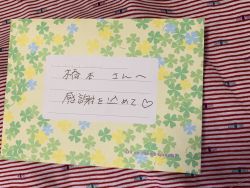 橋本 さんへ
感謝を込めて♡